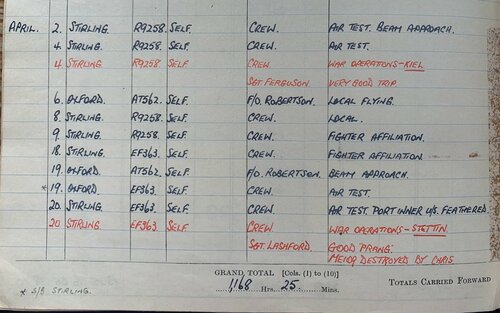 APRIL. 2. STIRLING. R9258. SELF. CREW. AIR TEST. BEAM APPROACH.
4 STIRLING. R9258. SELF. CREW. AIR TEST.
4 STIRLING R9258. SELF CREW WAR OPERATIONS-KIEL
SGT. FERGUSON. VERY GOOD TRIP.
6 OXFORD. AT562. SELF. F/O. ROBERTSON. LOCAL FLYING.
8 STIRLING. R9258. SELF. CREW. LOCAL.
9 STIRLING. R9258. SELF. CREW. FIGHTER AFFILIATION.
18. STIRLING. EF363. SELF. CREW. FIGHTER AFFILIATION
19. OXFORD. AT562 SELF. F/O. ROBERTSON. BEAM APPROACH.
* 19. OXFORD. EF363. SELF. CREW. AIR TEST.
20. STIRLING. EF363. SELF. CREW. AIR TEST. PORT INNER U/S. FEATHERED.
20 STIRLING. EF363. SELF CREW WAR OPERATIONS-STETTIN
SGT. LASHFORD. GOOD PRANG.
ME110 DESTROYED BY CHRIS
GRAND TOTAL [Cols. (1) to (10)]
1168 Hrs. 25 Mins.
TOTALS CARRIED FORWARD
* S/B STIRLING.